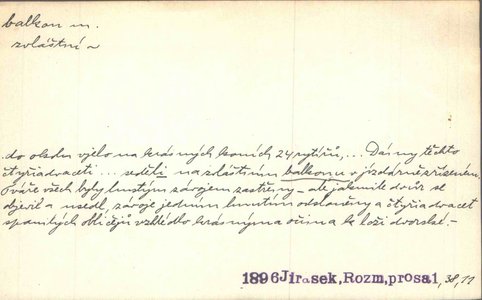 balkon m.
zvláštní ~
..do ohrady vjelo na krásných koních 24 rytířů,... Dámy těchto
čtyřiadvaceti... seděli na zvláštním balkonu v jízdárně zřízeném.
Tváře všech byly hustým závojem zastřeny – ale jakmile dvůr se
objevil a usedl, závoje jedním hnutím odsloněny a čtyřiadvacet
spanilých obličejů vzhlédlo krásnýma očima k loži dvorské.–
1896 Jirasek, Rozm, prosa 1, 38, 11